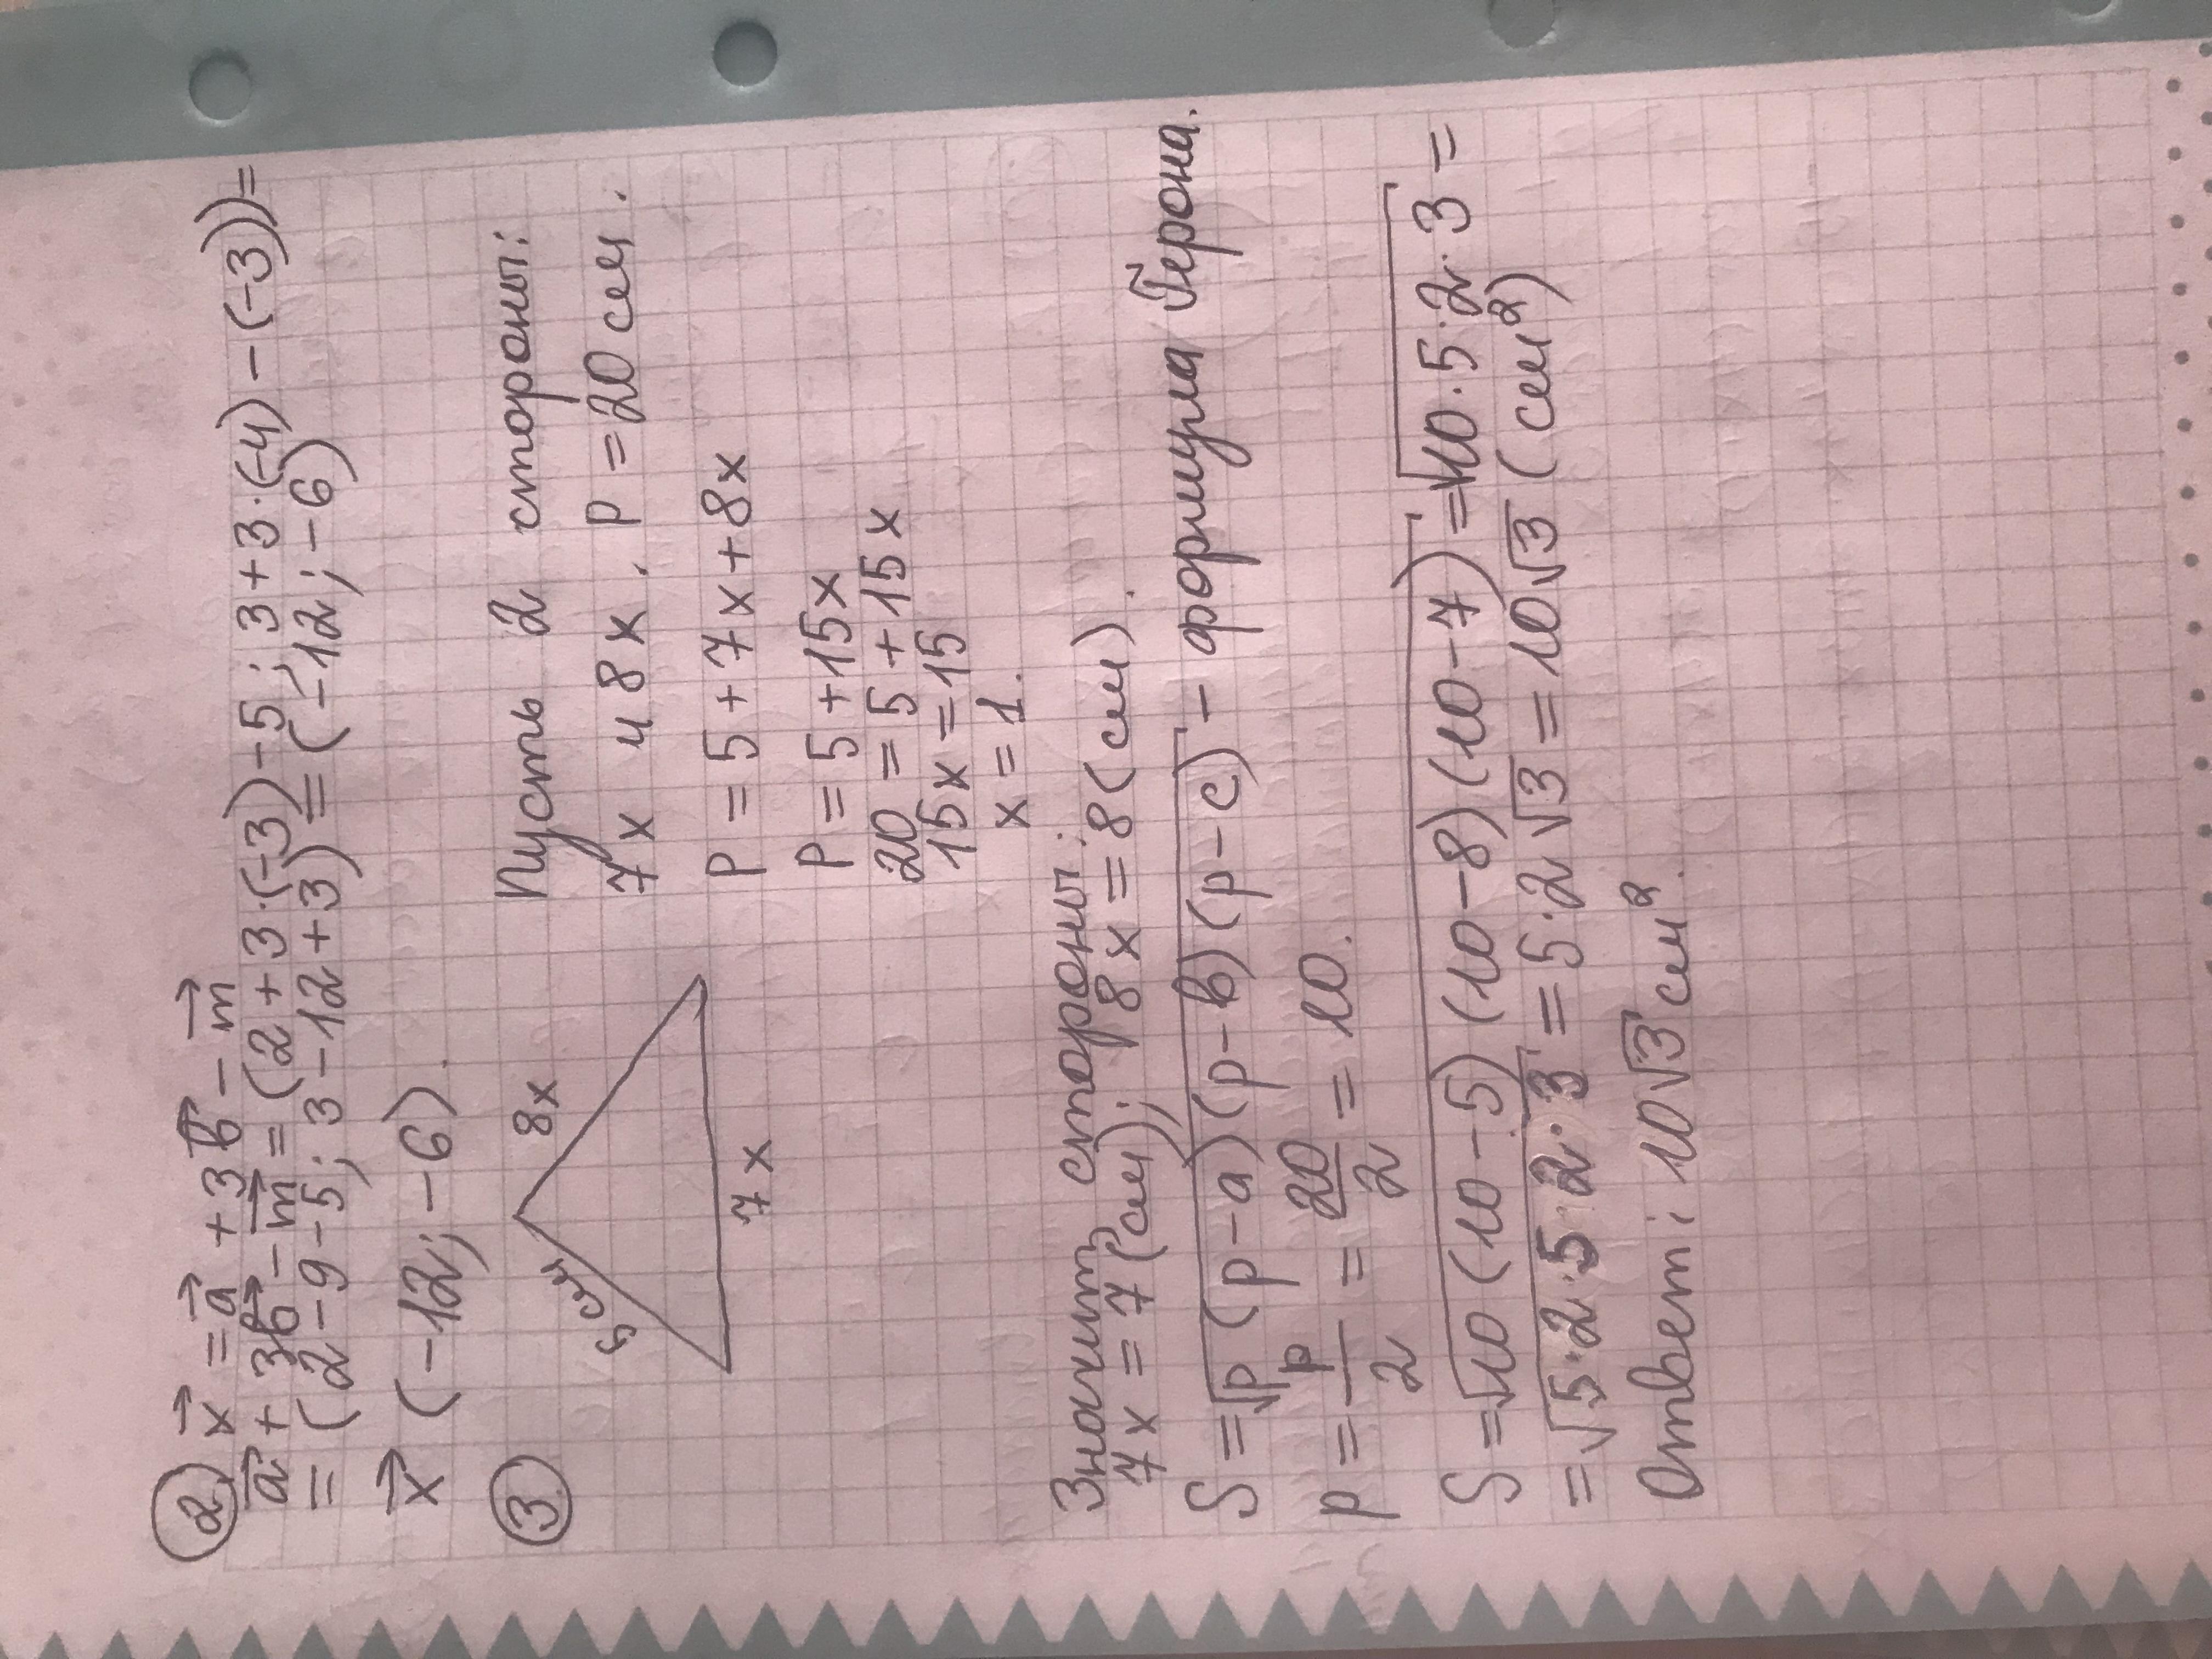 ② x⃗ = a⃗ + 3b⃗ − m⃗
a⃗ + 3b⃗ − m⃗ = (2 + 3·(−3) − 5; 3 + 3·(−4) − (−3)) =
= (2 − 9 − 5; 3 − 12 + 3) = (−12; −6)
x⃗ (−12; −6).
③ Пусть 2 стороны:
7x и 8x. P = 20 см.
8x
5 см
7x
P = 5 + 7x + 8x
P = 5 + 15x
20 = 5 + 15x
15x = 15
x = 1.
Значит стороны:
7x = 7 (см); 8x = 8 (см).
S = √p(p−a)(p−b)(p−c) − формула Герона.
p = P/2 = 20/2 = 10.
S = √10(10−5)(10−8)(10−7) = √10·5·2·3 =
= √5·2·5·2·3 = 5·2√3 = 10√3 (см²)
Ответ: 10√3 см².